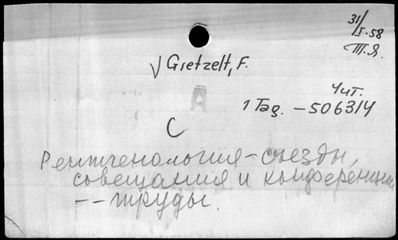 31/I-58
Т.Я.
√ Gietzelt, F.
Чит.
1 Tag. – 506314
С
Рентгенология – съезды,
совещания и конференции
– – труды.